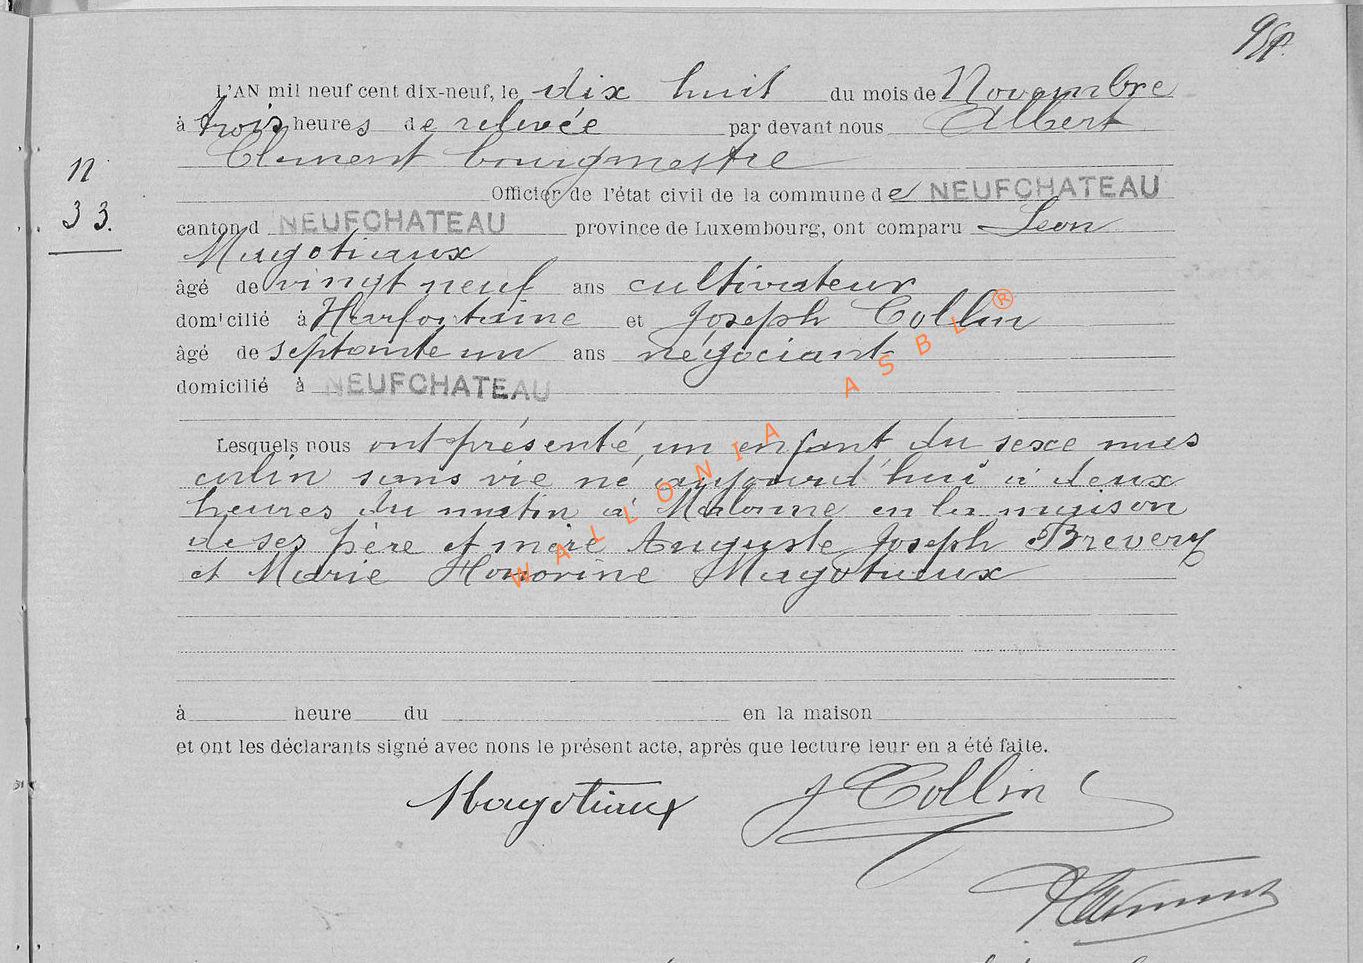 L'AN mil neuf cent dix-neuf, le dix huit du mois de Novembre
à trois heures de relevée par devant nous Albert
Clement bourgmestre
n
33.
Officier de l'état civil de la commune de NEUFCHATEAU
canton d NEUFCHATEAU province de Luxembourg, ont comparu Leon
Magotiaux
âgé de vingt neuf ans cultivateur
domicilié à Harfontaine et Joseph Collin
âgé de septante un ans négociant
domicilié à NEUFCHATEAU
Lesquels nous ont présenté un enfant du sexe mas
culin sans vie né aujourd'hui à deux
heures du matin à Malonne en la maison
de ses père et mère Auguste Joseph Brevery
et Marie Honorine Magotiaux
à heure du en la maison
et ont les déclarants signé avec nons le présent acte, après que lecture leur en a été faite.
Magotiaux J Collin
AClement
WALLONIA ASBL ®